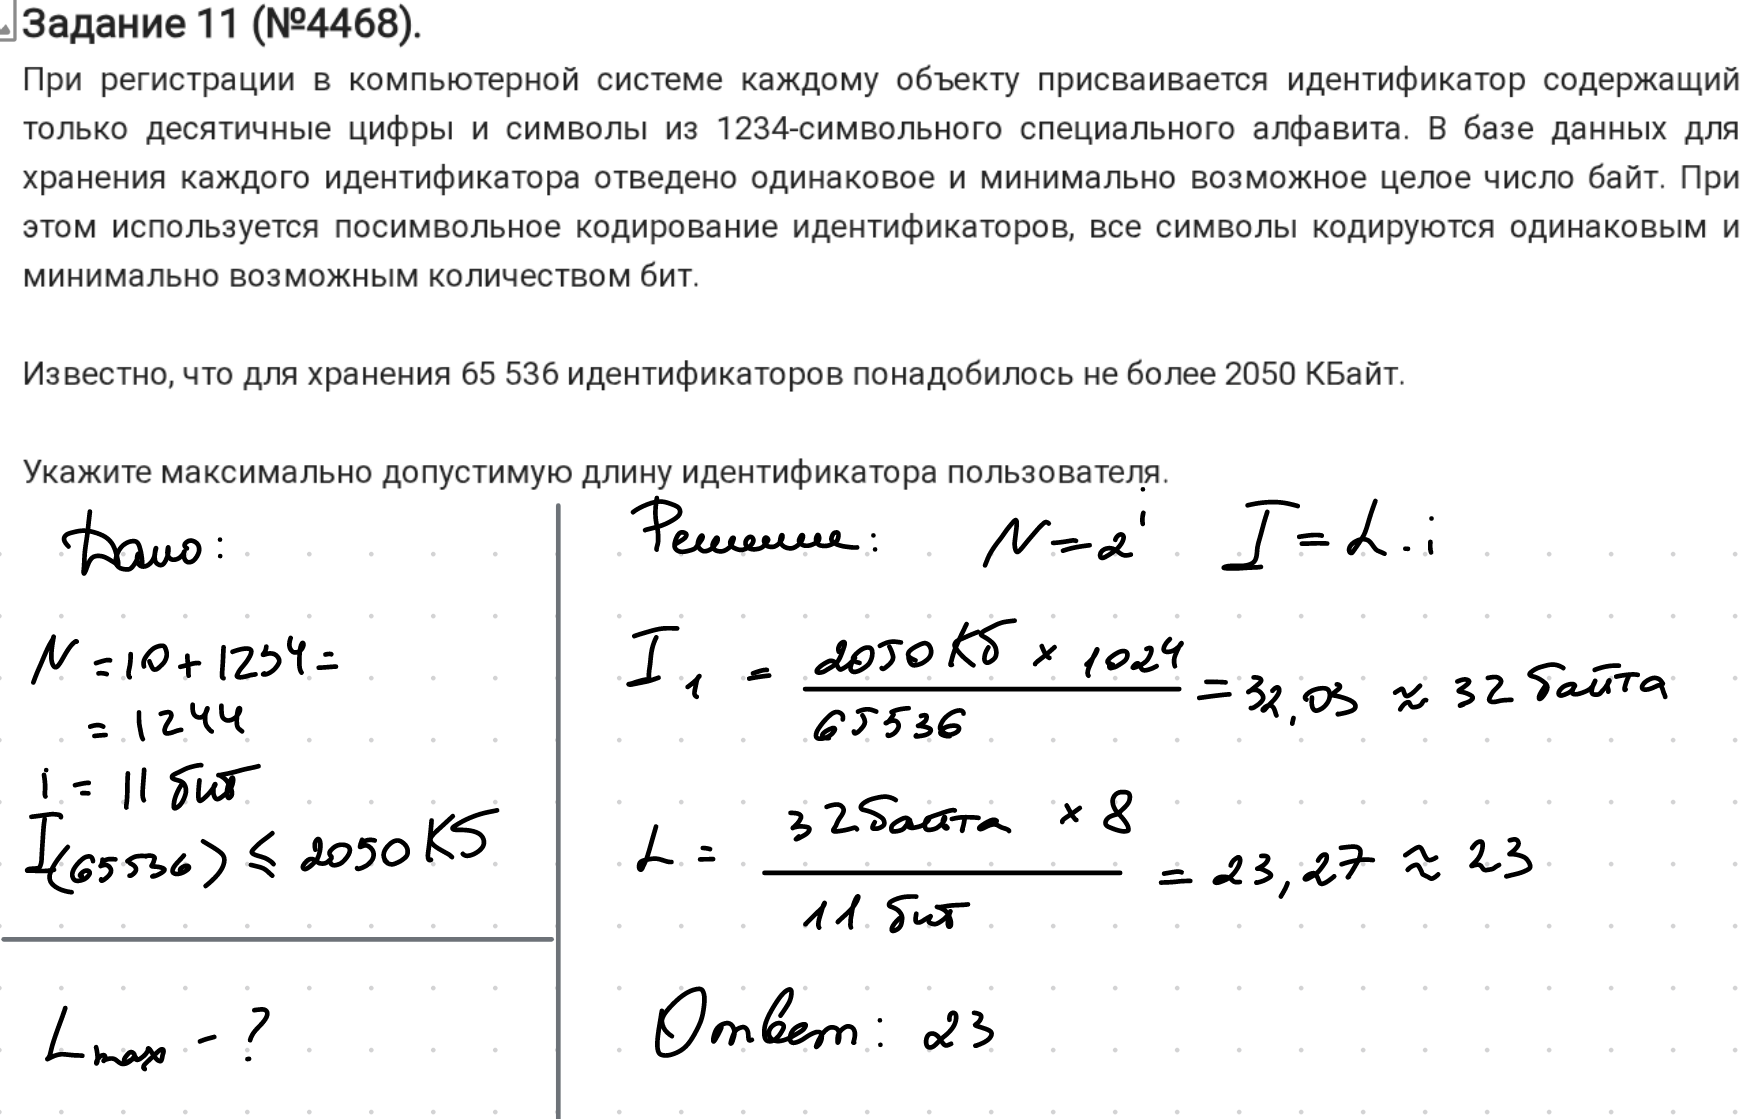 Задание 11 (№4468).
При регистрации в компьютерной системе каждому объекту присваивается идентификатор содержащий
только десятичные цифры и символы из 1234-символьного специального алфавита. В базе данных для
хранения каждого идентификатора отведено одинаковое и минимально возможное целое число байт. При
этом используется посимвольное кодирование идентификаторов, все символы кодируются одинаковым и
минимально возможным количеством бит.
Известно, что для хранения 65 536 идентификаторов понадобилось не более 2050 КБайт.
Укажите максимально допустимую длину идентификатора пользователя.
Дано:
N = 10 + 1234 =
= 1244
i = 11 бит
I(65536) ≤ 2050 Кб
Lmax - ?
Решение: N = 2^i I = L · i
I₁ = 2050 Кб × 1024 / 65536 = 32,03 ≈ 32 байта
L = 32 байта × 8 / 11 бит = 23,27 ≈ 23
Ответ: 23